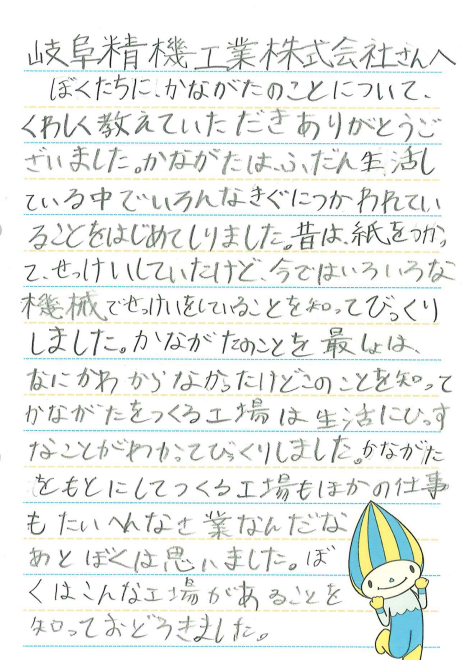 岐阜精機工業株式会社さんへ
ぼくたちに、かながたのことについて、
くわしく教えていただきありがとうご
ざいました。かながたは、ふだん生活し
ている中でいろんなきぐにつかわれてい
ることをはじめてしりました。昔は、紙をつかっ
て、せっけいしていたけど、今ではいろいろな
機械でせっけいをしていることを知ってびっくり
しました。かながたのことを最しょは、
なにかわからなかったけどこのことを知って
かながたをつくる工場は生活にひっす
なことがわかってびっくりしました。かながた
をもとにしてつくる工場もほかの仕事
もたいへんなさ業なんだな
あとぼくは思いました。ぼ
くはこんな工場があることを
知っておどろきました。